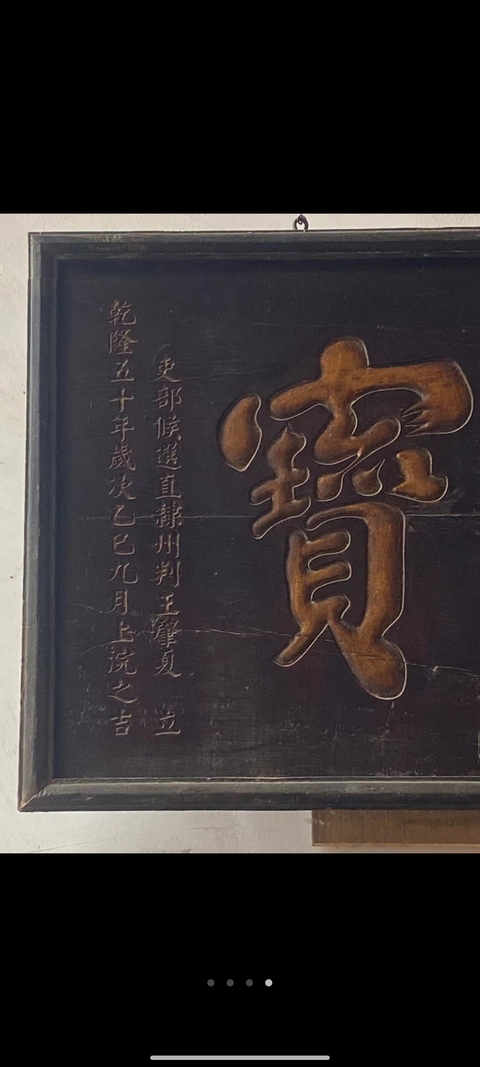 寶
吏部候選直隸州判王肇夏 立
乾隆五十年歲次乙巳九月上浣之吉